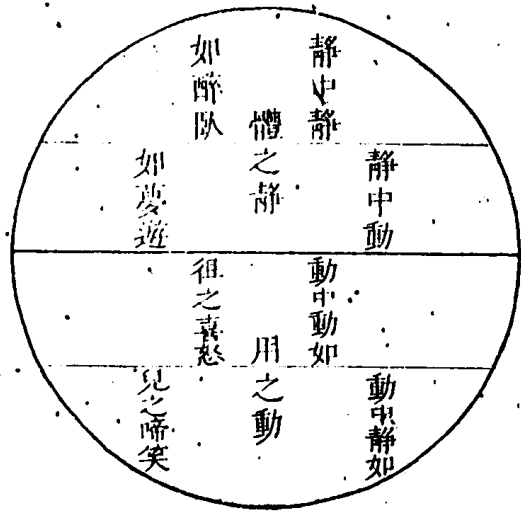 靜中靜
如醉臥
體之靜
靜中動
如夢遊
動中動如
徂之喜怒
用之動
動中靜如
兒之啼笑